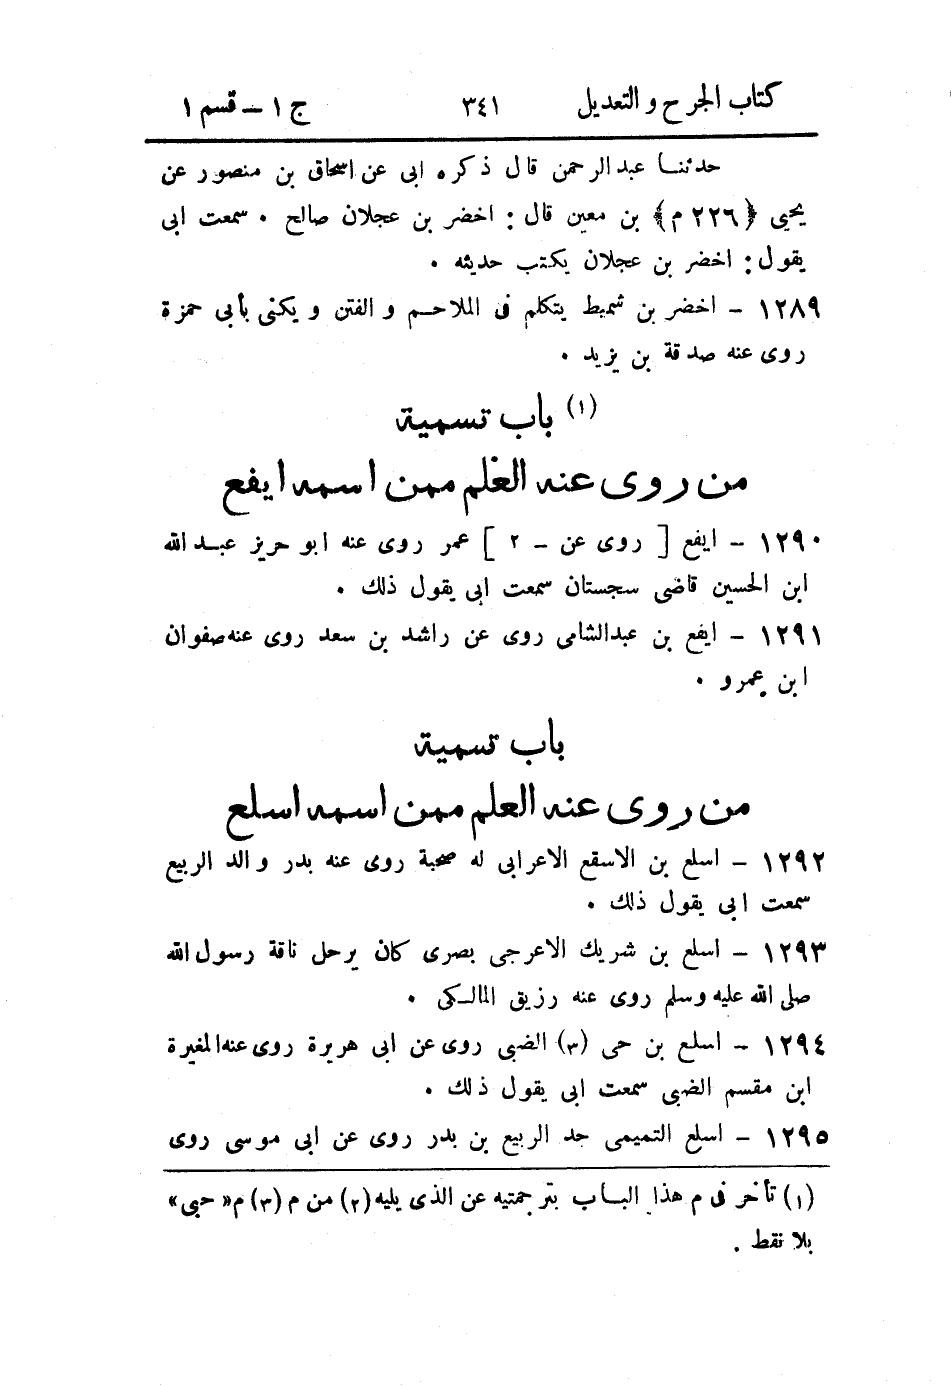 كتاب الجرح والتعديل ٣٤١ ج ١ – قسم ١
حدثنا عبد الرحمن قال ذكره ابى عن اسحاق بن منصور عن
يحيى ﴿٢٢٦ م﴾ بن معين قال: اخضر بن عجلان صالح . سمعت ابى
يقول: اخضر بن عجلان يكتب حديثه .
١٢٨٩ – اخضر بن شميط يتكلم فى الملاحم و الفتن و يكنى بأبى حمزة
روى عنه صدقة بن يزيد .
(١) باب تسمية
من روى عنه العلم ممن اسمه ايفع
١٢٩٠ – ايفع [ روى عن – ٢ ] عمر روى عنه ابو حريز عبد الله
ابن الحسين قاضى سجستان سمعت ابى يقول ذلك .
١٢٩١ – ايفع بن عبد الشامى روى عن راشد بن سعد روى عنه صفوان
ابن عمرو .
باب تسمية
من روى عنه العلم ممن اسمه اسلع
١٢٩٢ – اسلع بن الاسقع الاعرابى له صحبة روى عنه بدر والد الربيع
سمعت ابى يقول ذلك .
١٢٩٣ – اسلع بن شريك الاعرجى بصرى كان يرحل ناقة رسول الله
صلى الله عليه وسلم روى عنه رزيق المالكى .
١٢٩٤ – اسلع بن حى (٣) الضبى روى عن ابى هريرة روى عنه المغيرة
ابن مقسم الضبى سمعت ابى يقول ذلك .
١٢٩٥ – اسلع التميمى جد الربيع بن بدر روى عن ابى موسى روى
(١) تأخر فى م هذا الباب بترجمتيه عن الذى يليه (٢) من م (٣) م « حبى »
بلا نقط .